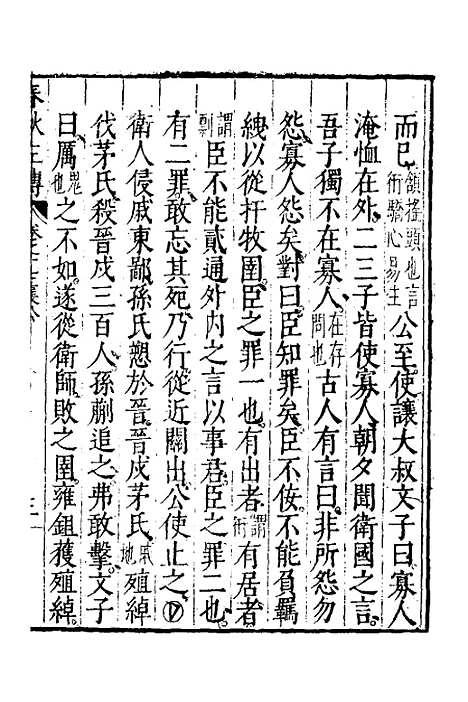 而已頷搖頭也言衎驕心易生公至使讓大叔文子曰寡人
淹恤在外二三子皆使寡人朝夕聞衛國之言
吾子獨不在寡人在存問也古人有言曰非所怨勿
怨寡人怨矣對曰臣知罪矣臣不佞不能負羈
絏以從扞牧圉臣之罪一也有出者謂衎有居者
謂剽臣不能貳通外内之言以事君臣之罪二也
有二罪敢忘其死乃行從近關出公使止之
衛人侵戚東鄙孫氏愬於晉晉戍茅氏戚地殖綽
伐茅氏殺晉戍三百人孫蒯追之弗敢擊文子
曰厲惡也之不如遂從衛師敗之圉雍鉏獲殖綽
春秋左傳